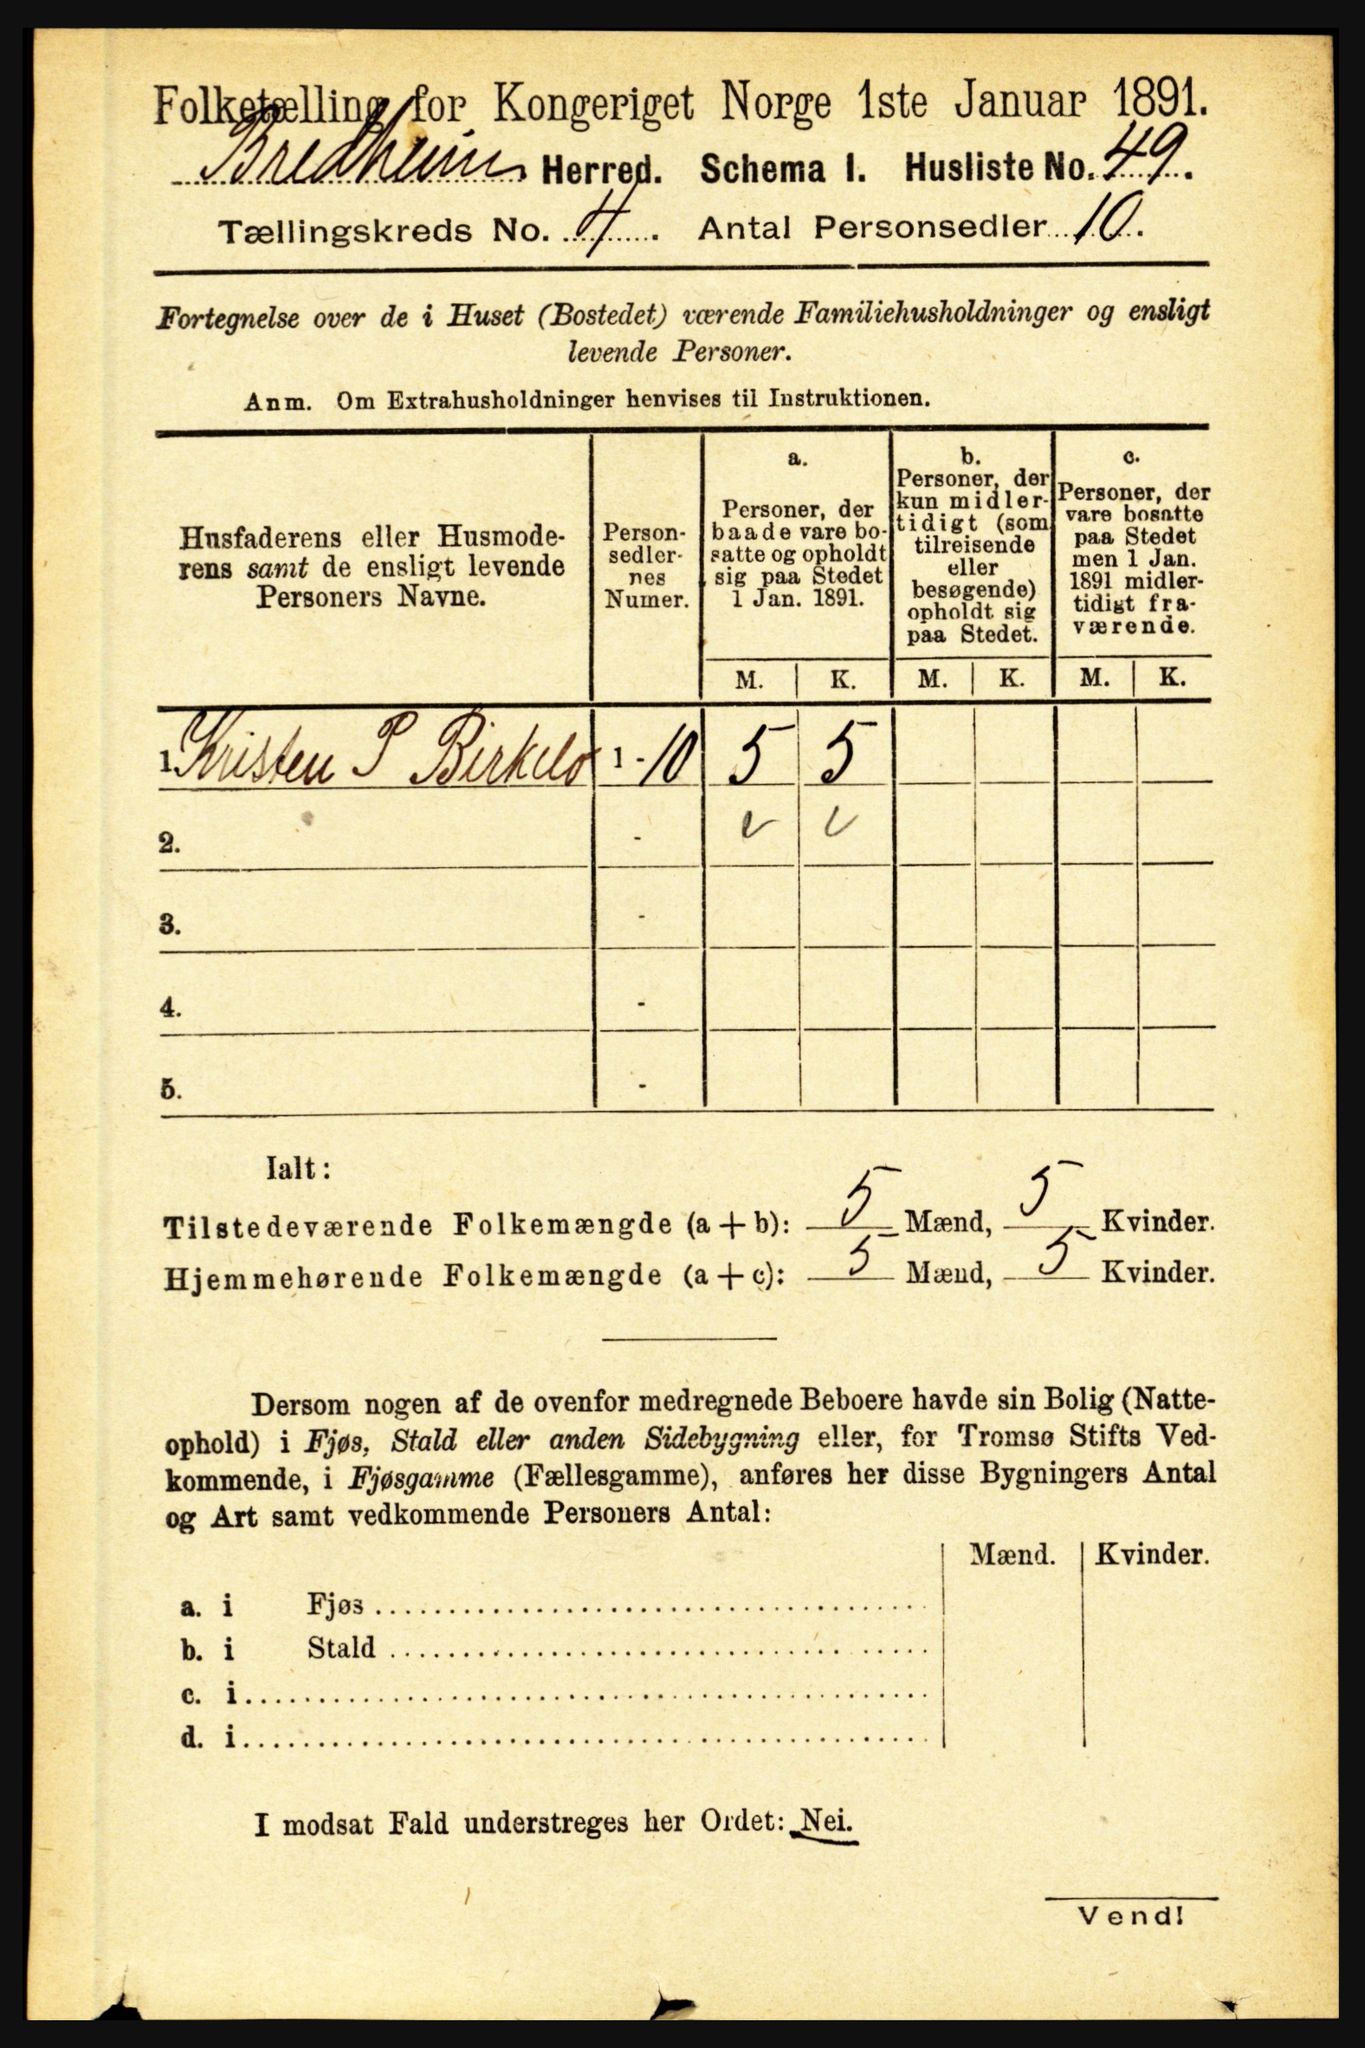 Folketælling for Kongeriget Norge 1ste Januar 1891.
Bredheim Herred. Schema I. Husliste No. 49.
Tællingskreds No. 4. Antal Personsedler 10.
Fortegnelse over de i Huset (Bostedet) værende Familiehusholdninger og ensligt
levende Personer.
Anm. Om Extrahusholdninger henvises til Instruktionen.
Husfaderens eller Husmode-
rens samt de ensligt levende
Personers Navne.
Person-
sedler-
nes
Numer.
a.
Personer, der
baade vare bo-
satte og opholdt
sig paa Stedet
1 Jan. 1891.
b.
Personer, der
kun midler-
tidigt (som
tilreisende
eller
besøgende)
opholdt sig
paa Stedet.
c.
Personer, der
vare bosatte
paa Stedet
men 1 Jan.
1891 midler-
tidigt fra-
værende.
M. K. M. K. M. K.
1. Kristen P Birkelo 1 - 10 5 5
2. -
3. -
4. -
5. -
Ialt:
Tilstedeværende Folkemængde (a + b): 5 Mænd, 5 Kvinder.
Hjemmehørende Folkemængde (a + c): 5 Mænd, 5 Kvinder.
Dersom nogen af de ovenfor medregnede Beboere havde sin Bolig (Natte-
ophold) i Fjøs, Stald eller anden Sidebygning eller, for Tromsø Stifts Ved-
kommende, i Fjøsgamme (Fællesgamme), anføres her disse Bygningers Antal
og Art samt vedkommende Personers Antal:
Mænd. Kvinder.
a. i Fjøs
b. i Stald
c. i
d. i
I modsat Fald understreges her Ordet: Nei.
Vend!